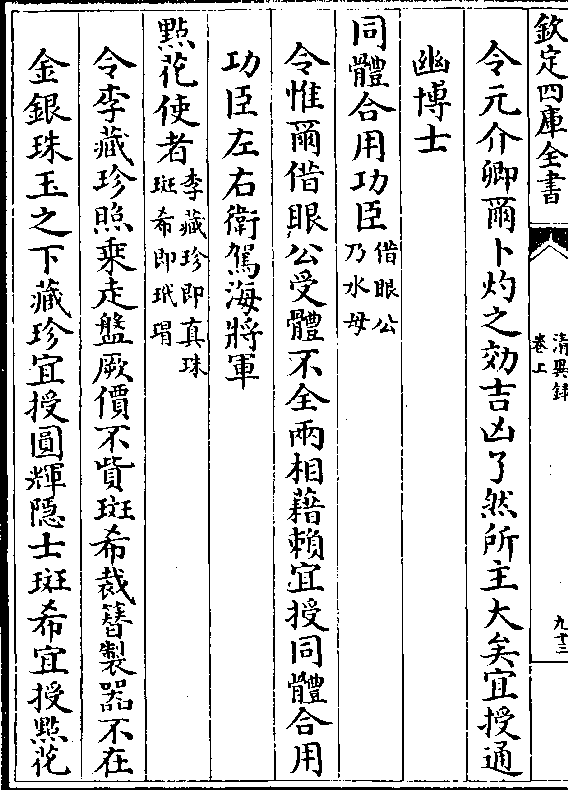 欽定四庫全書
清異録
卷上
九十三
令元介卿爾卜灼之効吉凶了然所主大矣宜授通
幽博士
同體合用功臣借眼公乃水母
令惟爾借眼公受體不全兩相藉賴宜授同體合用
功臣左右衛駕海將軍
點花使者李藏珍即真珠斑希即玳瑁
令李藏珍照乗走盤厥價不貲斑希裁簪製器不在
金銀珠玉之下藏珍宜授圓輝隱士斑希宜授點花